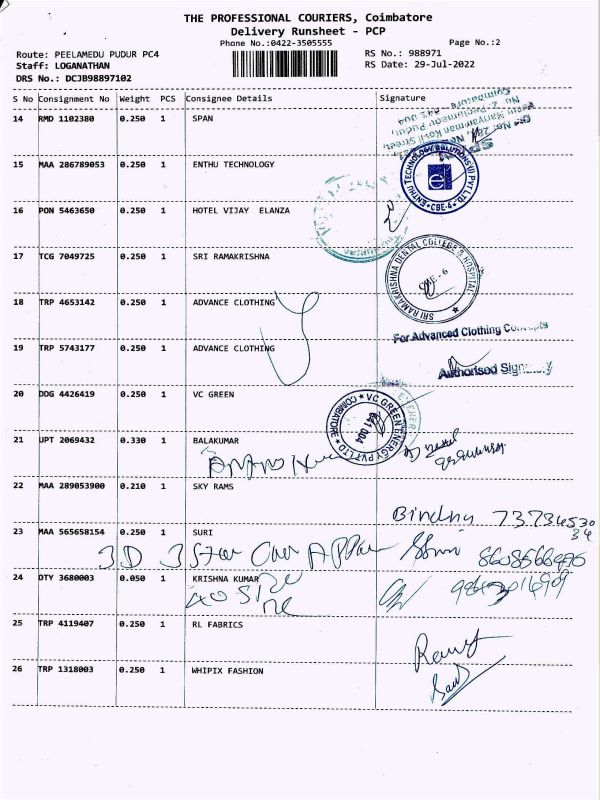 THE PROFESSIONAL COURIERS, Coimbatore
Delivery Runsheet - PCP
Phone No.:0422-3505555
Page No.:2
Route: PEELAMEDU PUDUR PC4
RS No.: 988971
Staff: LOGANATHAN
RS Date: 29-Jul-2022
DRS No.: DCJB98897102
S No Consignment No Weight PCS Consignee Details Signature
14 RMD 1102380 0.250 1 SPAN
15 MAA 286789053 0.250 1 ENTHU TECHNOLOGY
ENTHU TECHNOLOGY SOLUTIONS (I) PVT LTD. CBE-4
16 PON 5463650 0.250 1 HOTEL VIJAY ELANZA
17 TCG 7049725 0.250 1 SRI RAMAKRISHNA
SRI RAMAKRISHNA DENTAL COLLEGE & HOSPITAL CBE-6
18 TRP 4653142 0.250 1 ADVANCE CLOTHING
For Advanced Clothing
19 TRP 5743177 0.250 1 ADVANCE CLOTHING
Authorised
20 DDG 4426419 0.250 1 VC GREEN
VC GREEN ENERGY PVT LTD COIMBATORE 641 004
21 UPT 2069432 0.330 1 BALAKUMAR
22 MAA 289053900 0.210 1 SKY RAMS
Bindhu
23 MAA 565658154 0.250 1 SURI
3D 3 Star
24 DTY 3680003 0.050 1 KRISHNA KUMAR
25 TRP 4119407 0.250 1 RL FABRICS
26 TRP 1318003 0.250 1 WHIPIX FASHION